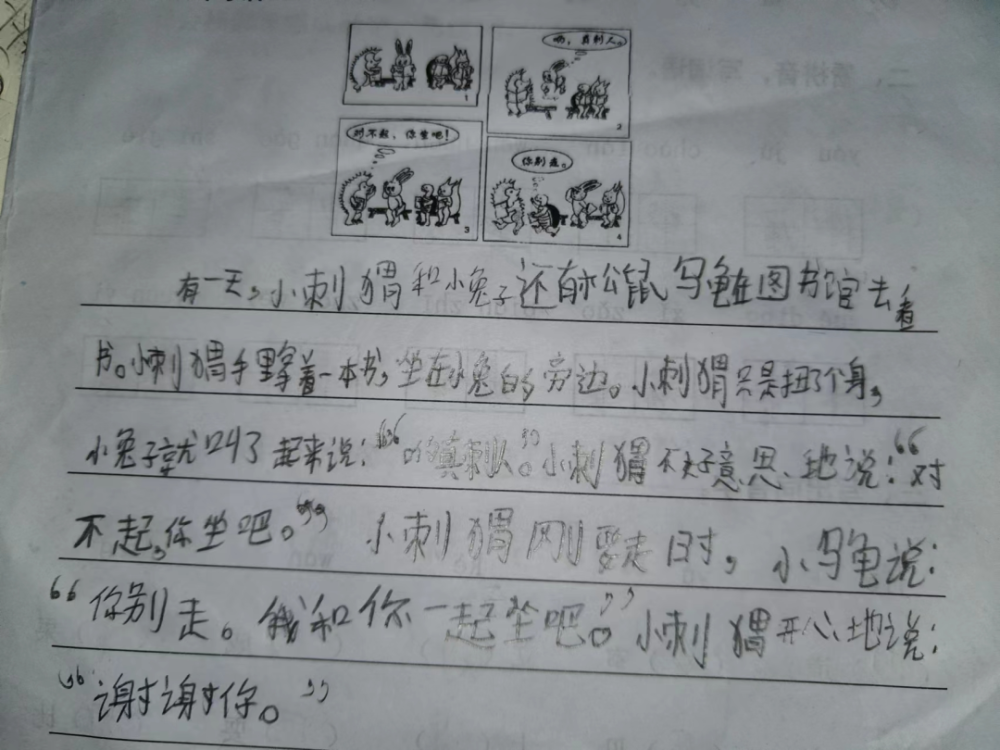 1
哟，真刺人。
2
对不起，你坐吧！
3
你别走。
4
有一天，小刺猬和小兔子还有松鼠乌龟在图书馆去看
书。小刺猬手里拿着一本书，坐在小兔的旁边。小刺猬只是扭了个身，
小兔子就叫了起来说：“哟真刺人。”小刺猬不好意思地说：“对
不起，你坐吧。”小刺猬刚要走时，小乌龟说：
“你别走。我和你一起坐吧。”小刺猬开心地说：
“谢谢你。”